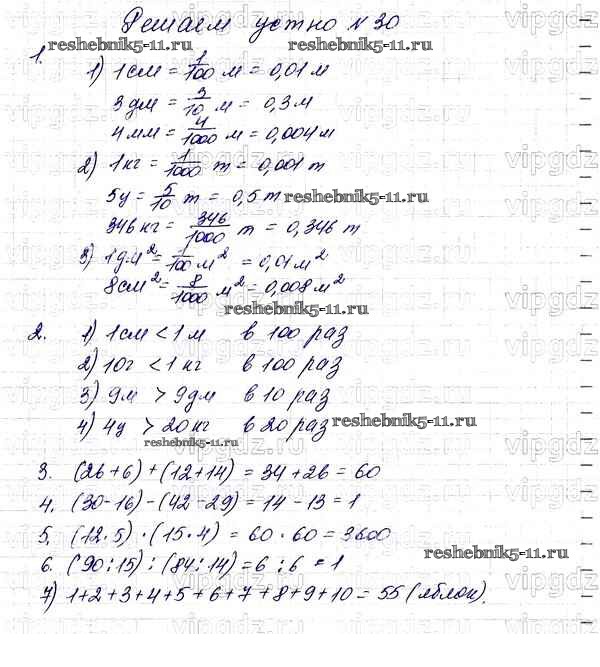 Решаем устно №30
reshebnik5-11.ru reshebnik5-11.ru
1.
1) 1 см = 1/100 м = 0,01 м
3 дм = 3/10 м = 0,3 м
4 мм = 4/1000 м = 0,004 м
2) 1 кг = 1/1000 т = 0,001 т
5 ц = 5/10 т = 0,5 т reshebnik5-11.ru
346 кг = 346/1000 т = 0,346 т
3) 1 дм² = 1/100 м² = 0,01 м²
8 см² = 8/1000 м² = 0,008 м²
reshebnik5-11.ru
2. 1) 1 см < 1 м в 100 раз
2) 10г < 1 кг в 100 раз
3) 9м > 9дм в 10 раз
4) 4ц > 20 кг в 20 раз reshebnik5-11.ru
reshebnik5-11.ru
3. (26+6)+(12+14) = 34+26 = 60
4. (30-16)-(42-29) = 14-13 = 1
5. (12·5)·(15·4) = 60·60 = 3600
6. (90:15):(84:14) = 6:6 = 1 reshebnik5-11.ru
7) 1+2+3+4+5+6+7+8+9+10 = 55 (яблок).
vipgdz.ru